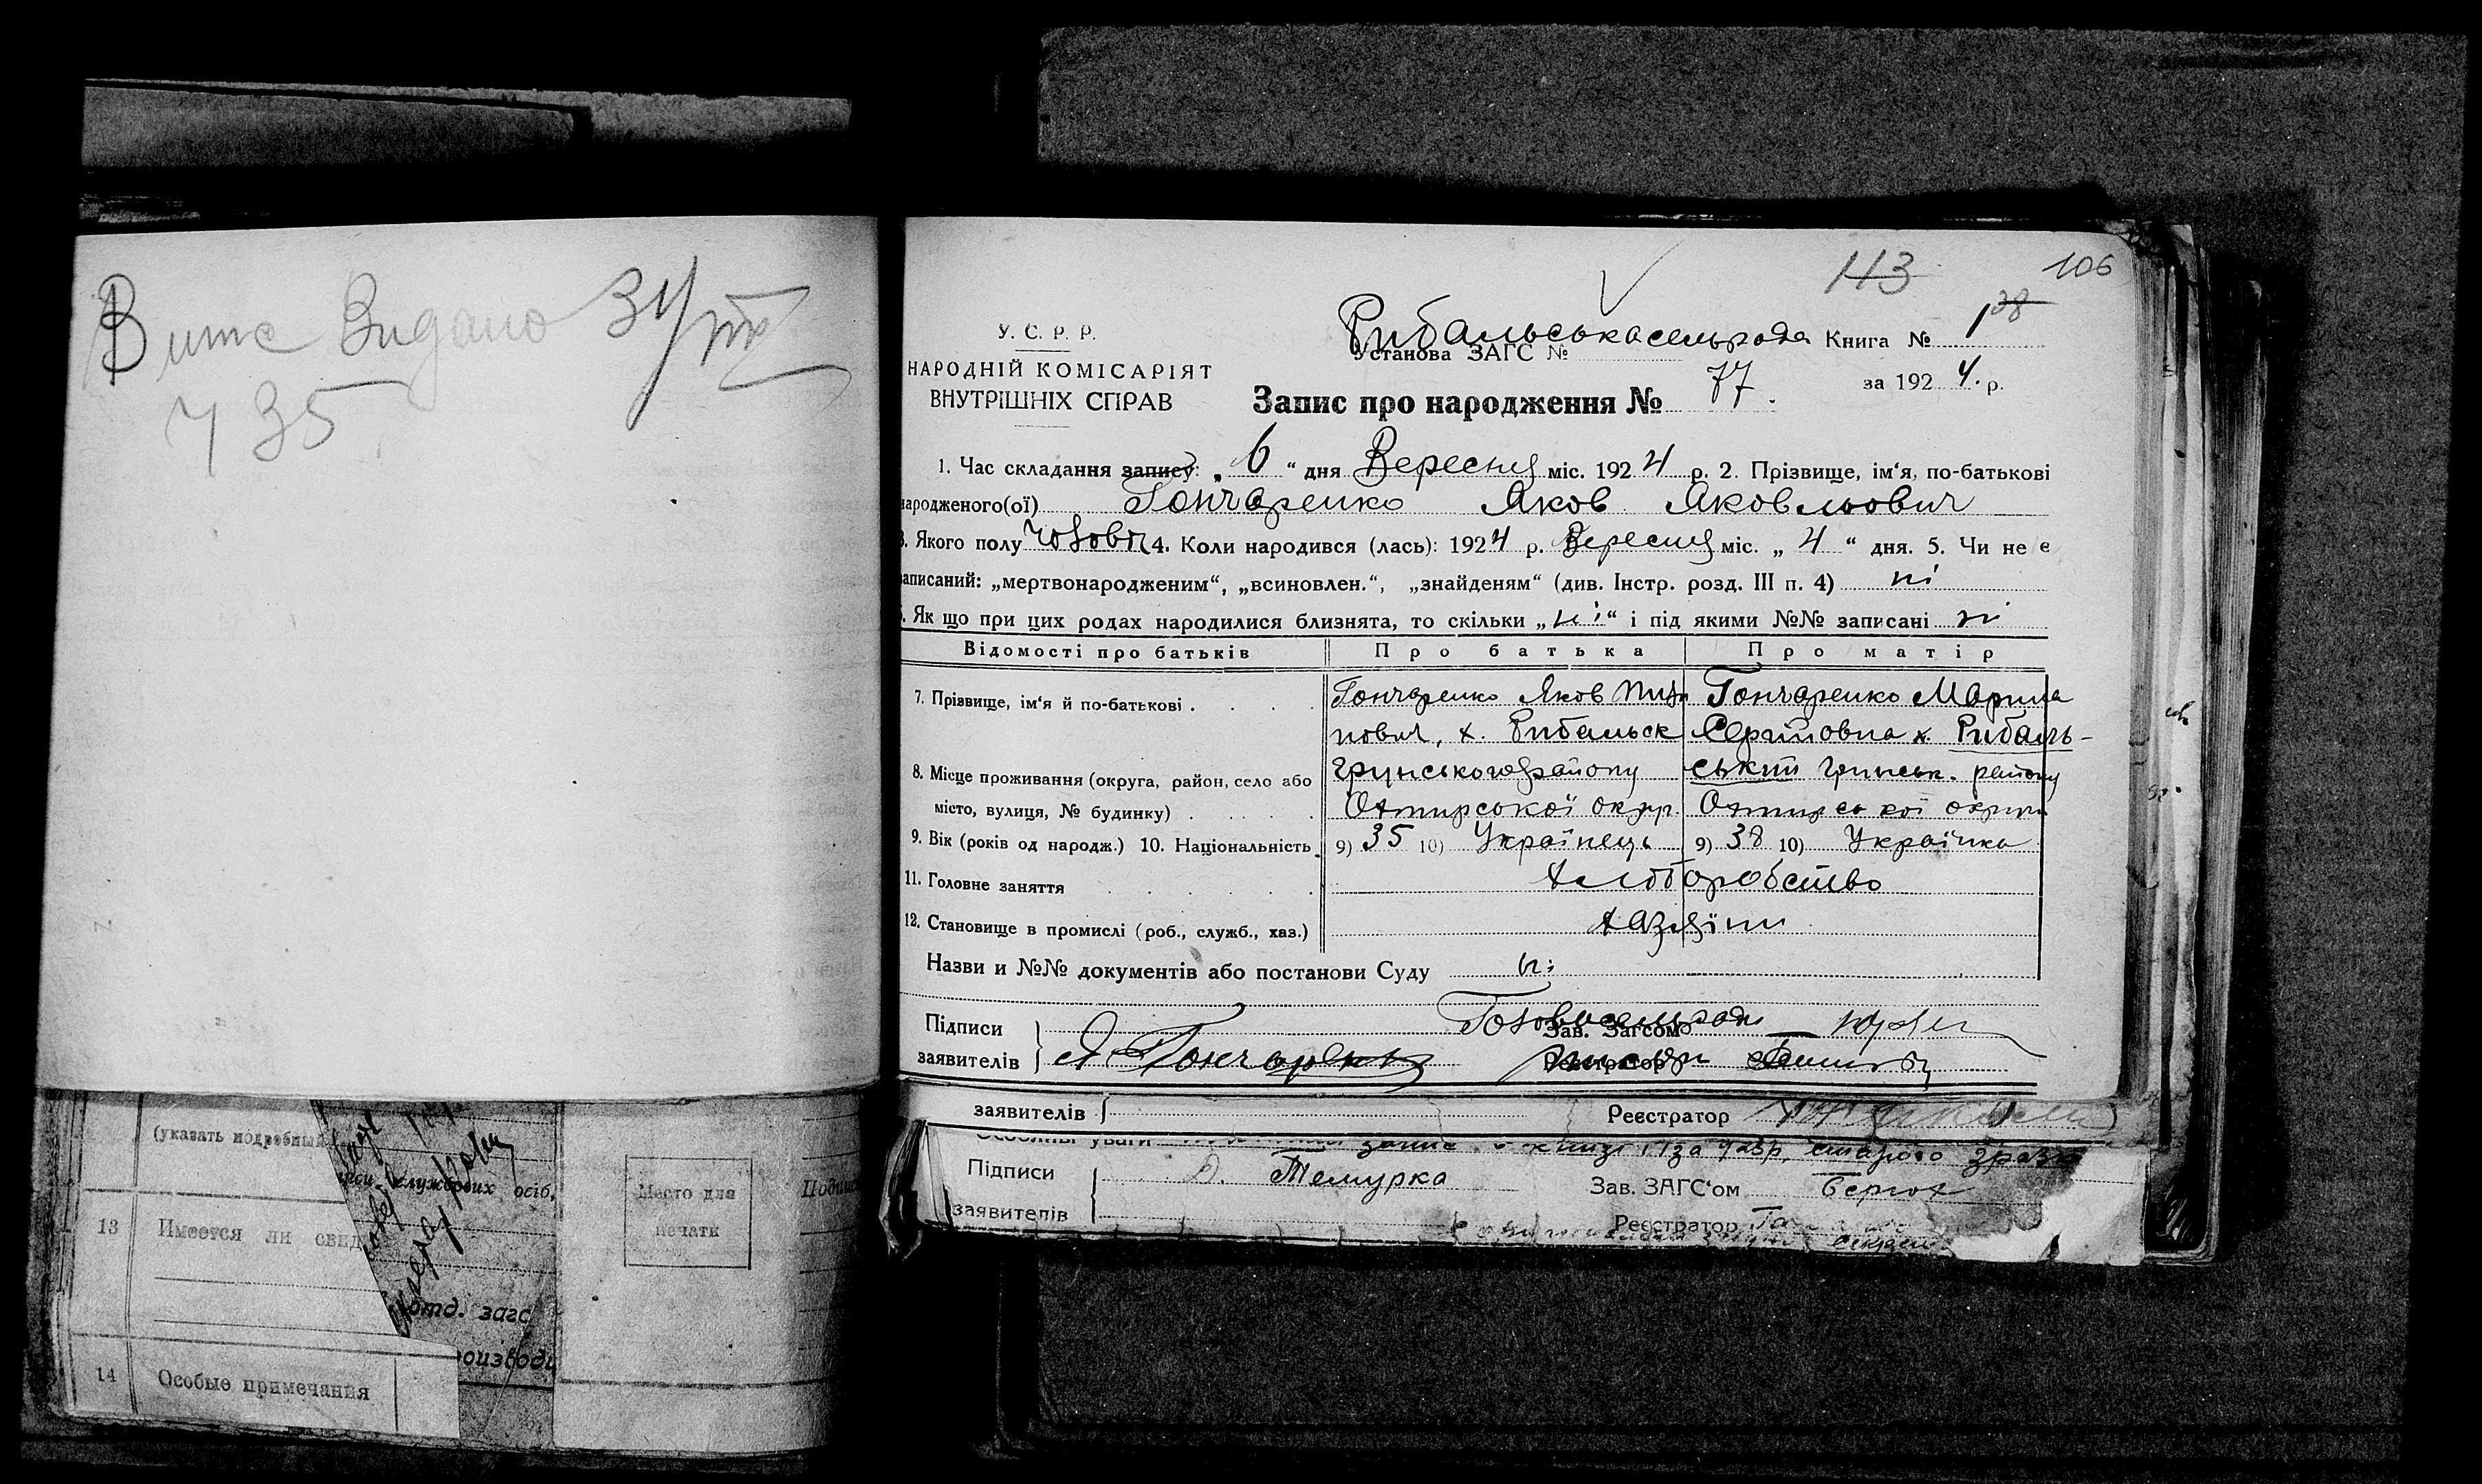 Видано
735
113
106
У. С. Р. Р.
НАРОДНІЙ КОМІСАРІЯТ
ВНУТРІШНІХ СПРАВ
Рибальська сельрада
Установа ЗАГС №
Книга № 1
за 1924. р.
Запис про народження № 77.
1. Час складання запису: „6“ дня Вересня міс. 1924 р. 2. Прізвище, ім‘я, по-батькові
народженого(ої) Гончаренко Яков Яковльович
3. Якого полу чолові 4. Коли народився (лась): 1924 р. Вересня міс. „4“ дня. 5. Чи не є
записаний: „мертвонародженим“, „всиновлен.“, „знайденям“ (див. Інстр. розд. III п. 4) ні
6. Як що при цих родах народилися близнята, то скільки „ні“ і під якими №№ записані ні
Відомості про батьків Про батька Про матір
7. Прізвище, ім‘я й по-батькові . Гончаренко Яков Гончаренко Марина
нович, х. Рибальськ Сергіїовна х. Рибаль-
8. Місце проживання (округа, район, село або Грунського району ський Грунськ. району
місто, вулиця, № будинку) Охтирської окр. Охтирської округи
9. Вік (років од народж.) 10. Національність 9) 35 10) Українець 9) 38 10) Українка
11. Головне заняття Хліборобство
12. Становище в промислі (роб., служб., хаз.) хазяїни
Назви и №№ документів або постанови Суду ні
Голова сельради
Підписи
Зав. Загсом
заявителів Я Гончаренко
Реєстратор
заявителів
Реєстратор
Особливі уваги
Підписи
Темурка
Зав. ЗАГС‘ом
заявителів
Реєстратор
(указать подробный
службових осіб,
Место для
печати
13 Имеется ли свид
отд. загс
14 Особые примечания